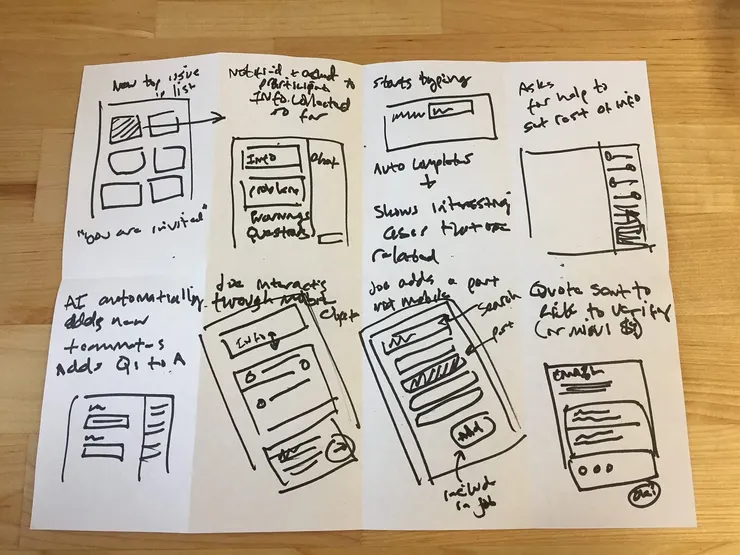 New top issue
in list
"You are invited"
Notified + asked to
participate
Info collected
so far
Info
Problem
Warnings
Questions
Chat
Starts typing
Auto completes
+
Shows interesting
cases that are
related
Asks
for help to
get rest of info
AI automatically
adds new
teammates
Adds Q1 to A
Joe interacts
through mobile
Chat
Info
Joe adds a part
not mobile
search
part
Add
include
in job
Quote sent to
Rick to verify
(or mod
Email